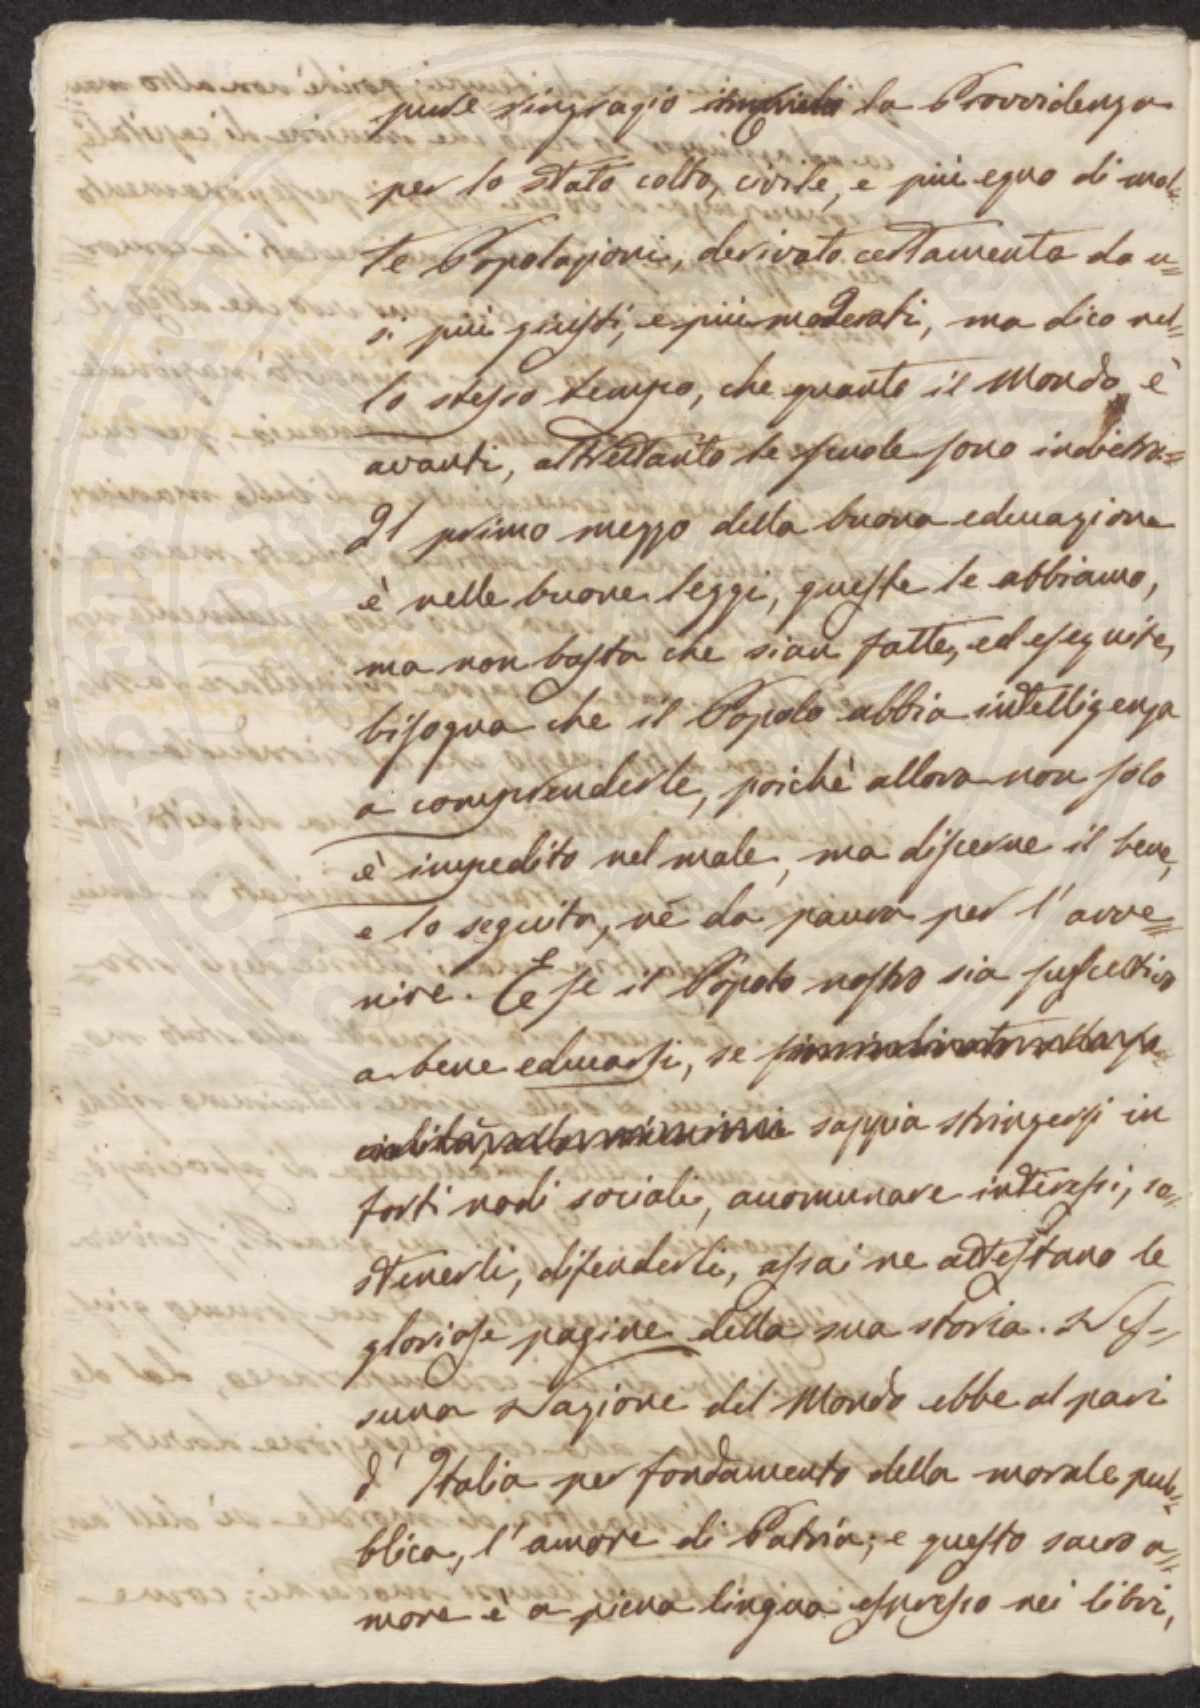 pure ringrazio la Provvidenza
per lo stato colto, civile, e più equo di mol=
te Popolazioni, derivato certamente da u=
si più giusti, e più moderati, ma dico nel=
lo stesso tempo, che quanto il Mondo è
avanti, altrettanto le scuole sono indietro=
Il primo mezzo della buona educazione
è nelle buone leggi, queste le abbiamo,
ma non basta che sian fatte, ed eseguite,
bisogna che il Popolo abbia intelligenza
a comprenderle, poichè allora non solo
è impedito nel male, ma discerne il bene,
e lo seguita, nè da paura per l'avve=
nire. E se il Popolo nostro sia suscettivo
a bene educarsi, se
sappia stringersi in
forti nodi sociali, accomunare interessi, so=
stenerli, difenderli, assai ne attestano le
gloriose pagine della sua storia. Nes=
suna Nazione del Mondo ebbe al pari
d'Italia per fondamento della morale pub=
blica, l'amore di Patria; e questo sacro a=
more è a piena lingua espresso nei libri,